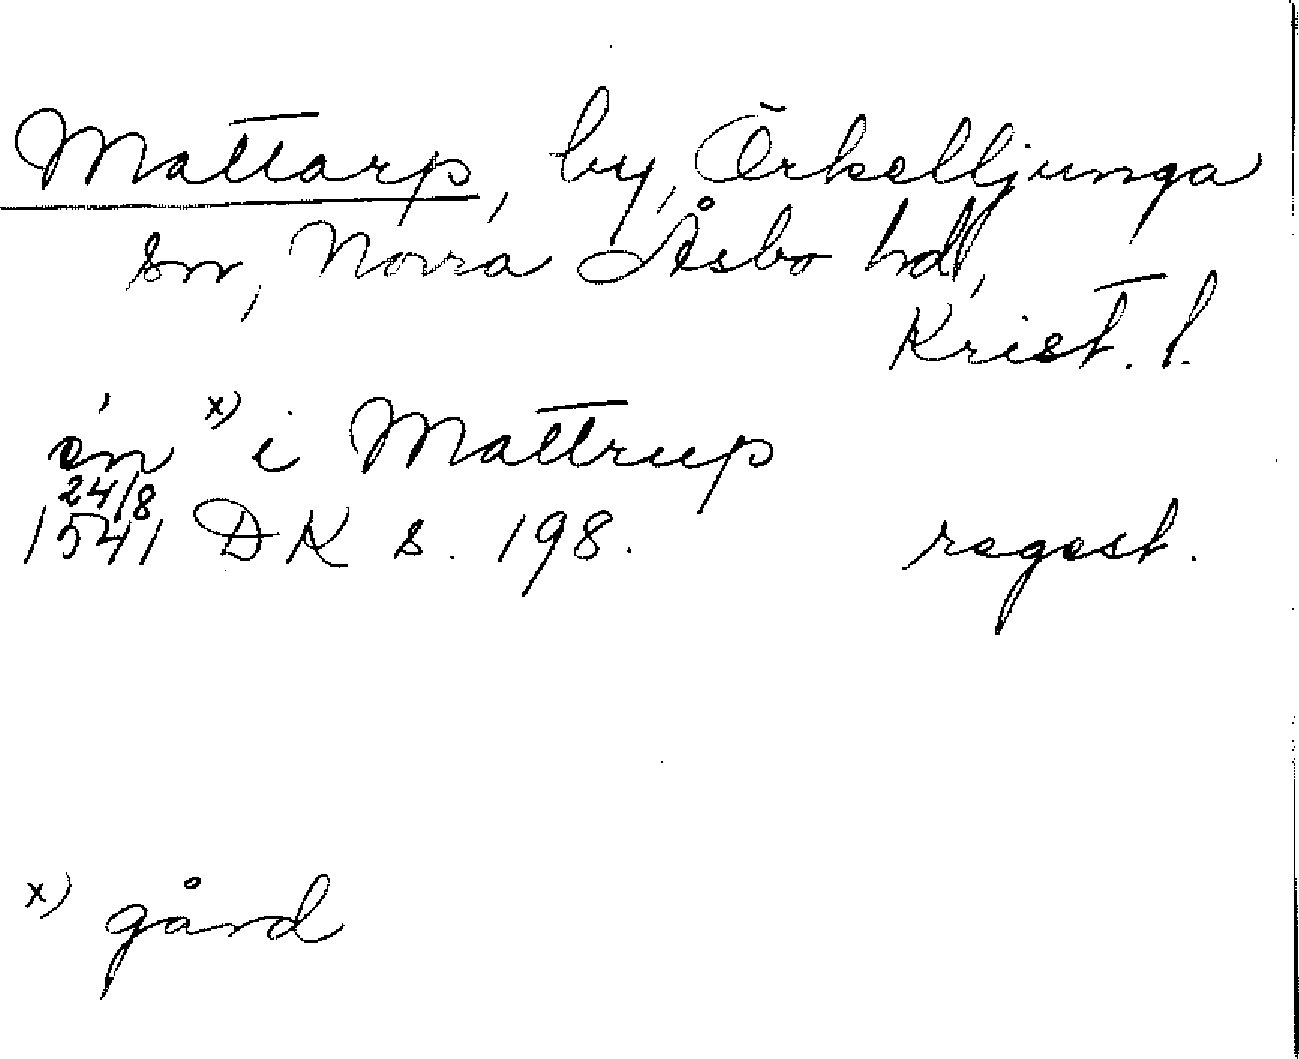 Mattarp, by, Örkelljunga
sn, Norra Åsbo hd,
Krist. l.
én x) i Mattrup
24/8
1541 DK s. 198. regest.
x) gård